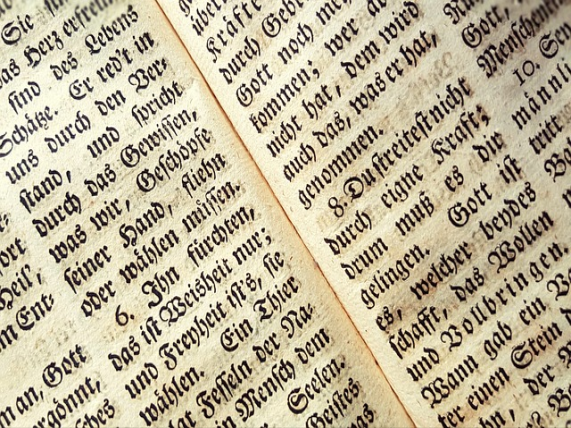 Sie
das Herz erfreuen
sind des Lebens
Schätze. Er red't in
uns durch den Ver-
stand, und spricht
durch das Gewissen,
was wir, Geschöpfe
seiner Hand, fliehn
oder wählen müssen.
6. Ihn fürchten,
das ist Weisheit nur;
und Freyheit ist's, sie
wählen. Ein Thier
hat Fesseln der Na-
ein Mensch dem
Seelen.
Geistes
was
ort
Heil,
m Ent-
man, Gott
ches
Kräfte
durch Geb
Gott noch
kommen; wer
nicht hat, dem wird
auch das, was er hat,
genommen.
8. Du streitest nicht
durch eigne Kraft;
drum muß es dir
gelingen. Gott ist
es, welcher beydes
schafft, das Wollen
und Vollbringen.
Wann gab ein Va-
ter einen Stein
der
Gott,
Menschen
10.
männli
tritt